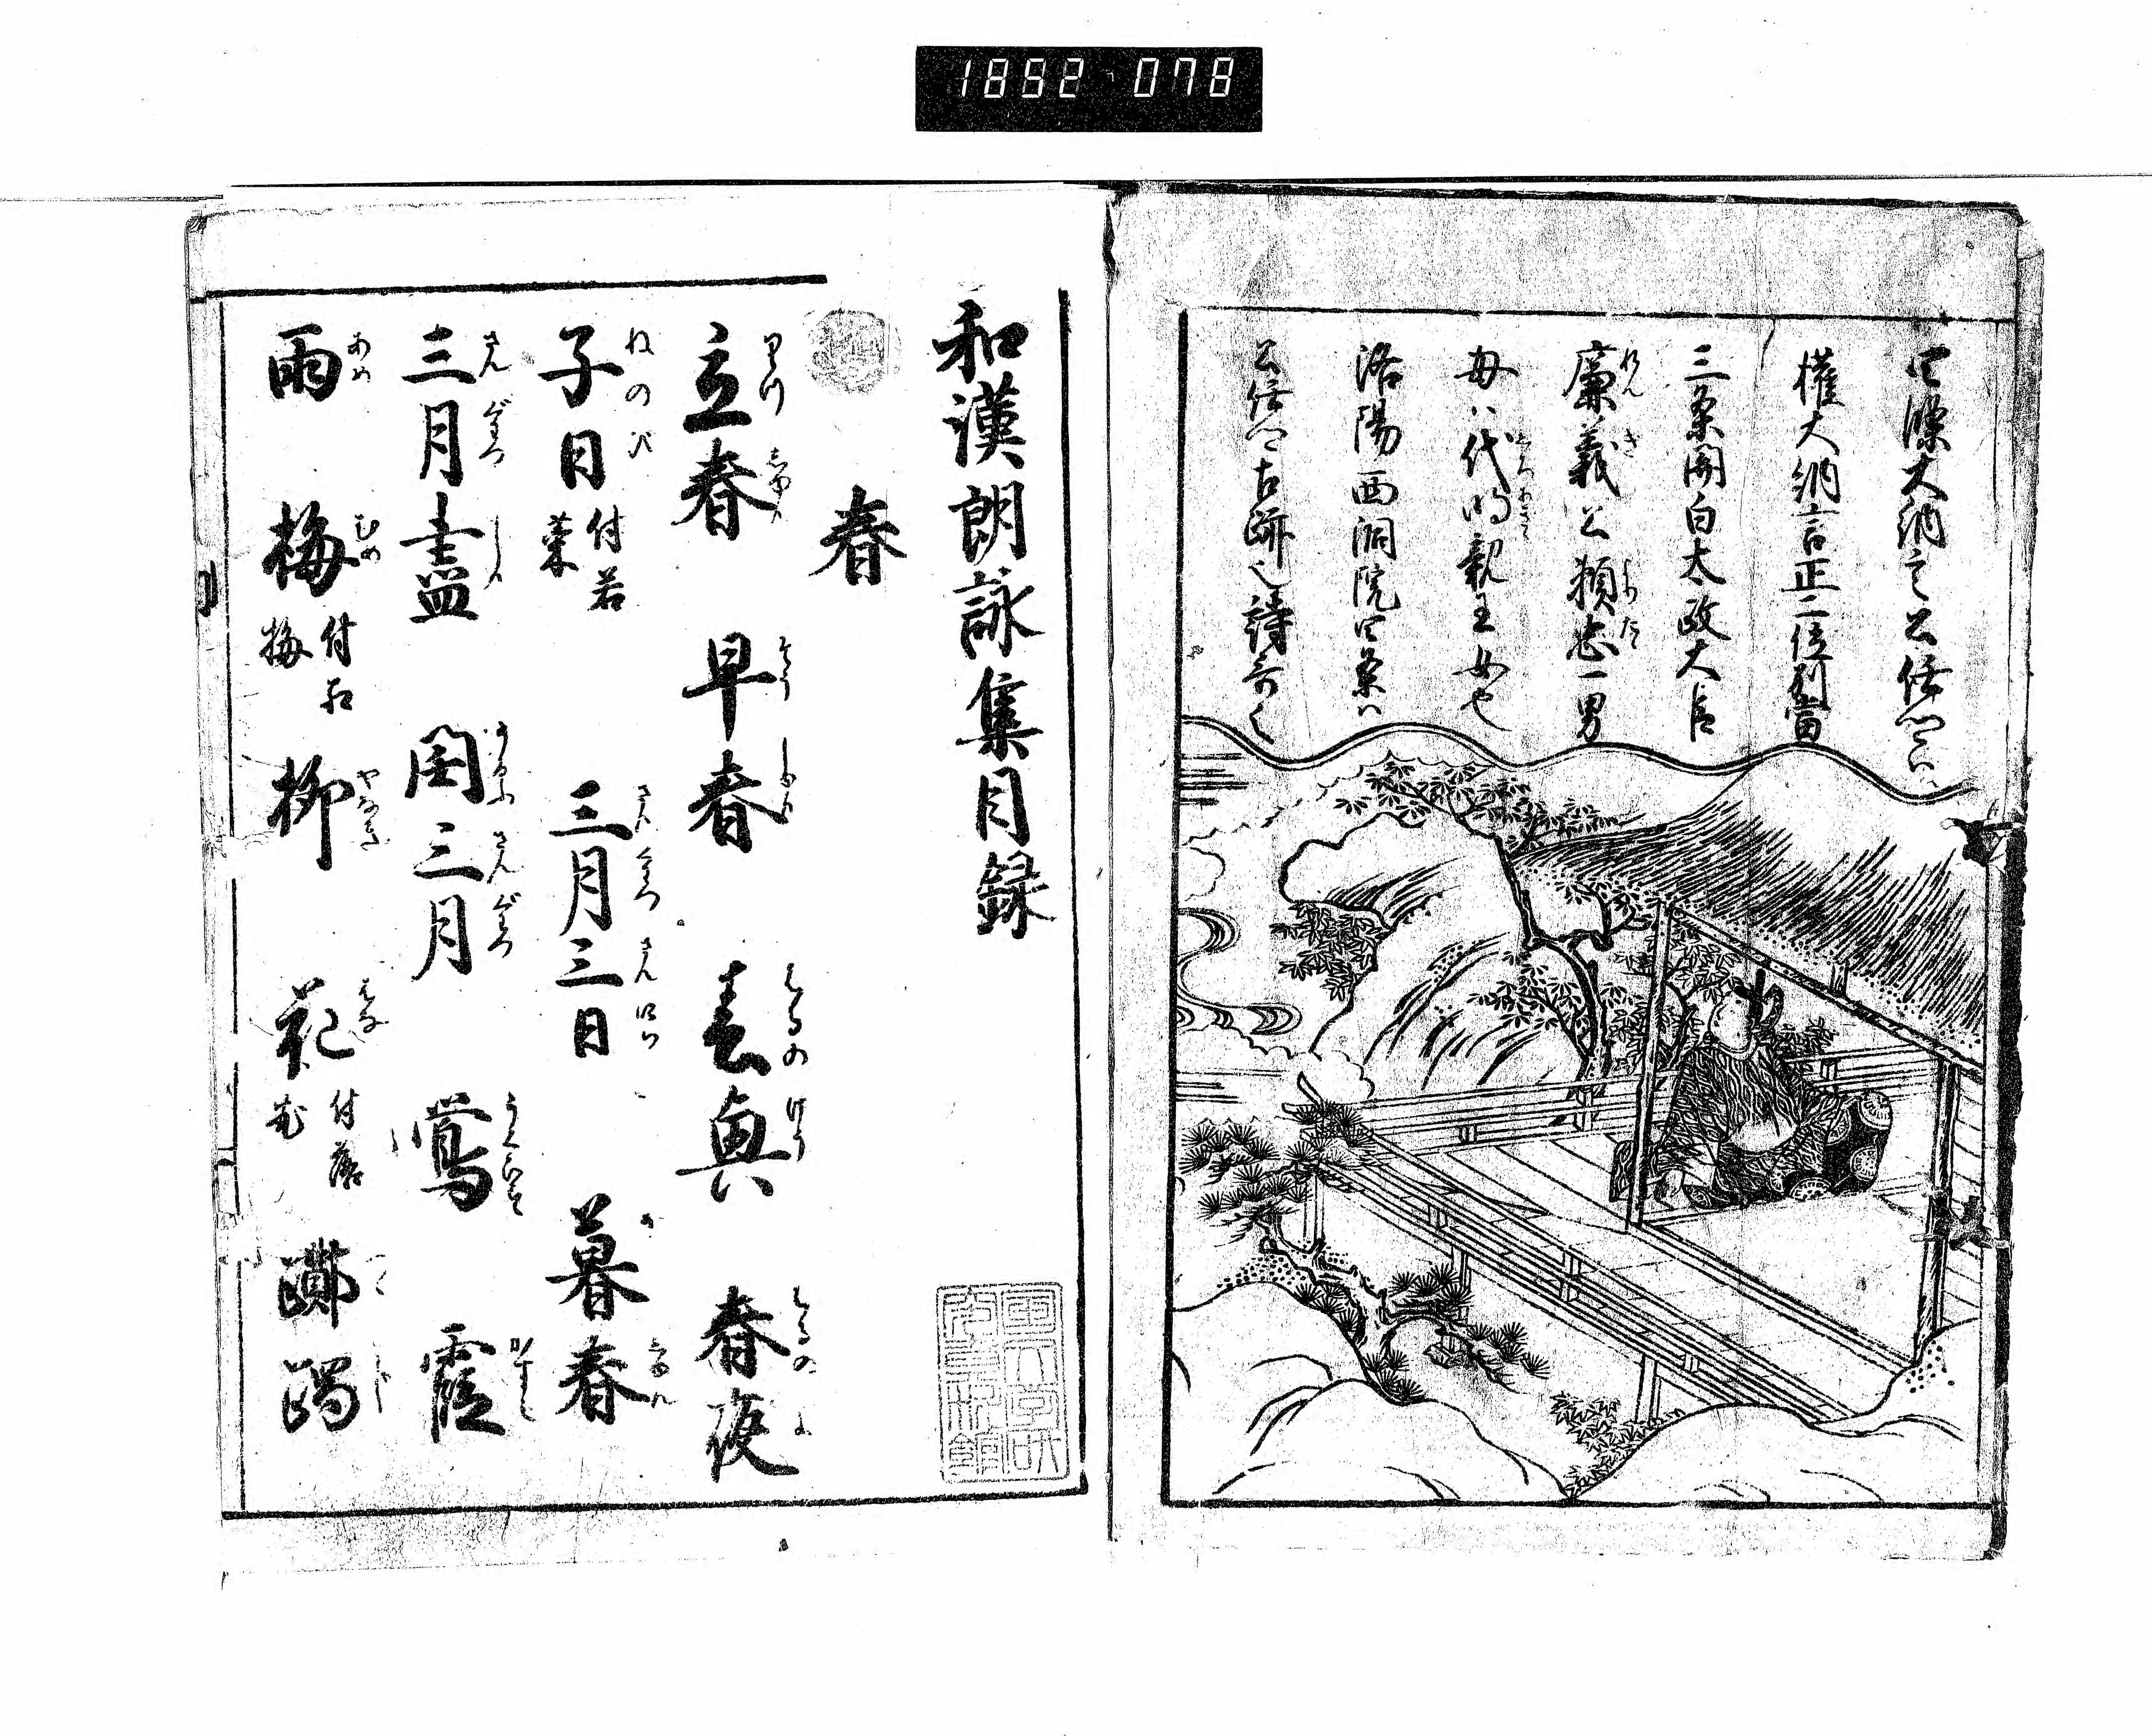 1892 078
四條大納言公任卿ハ
權大納言正二位別當
三条関白太政大臣
廉義公頼忠一男
母ハ代明親王女也
洛陽西洞院四条ハ
公任卿古跡也詩哥
和漢朗詠集目録
春
立春 早春 春興 春夜
子日付若菜 三月三日 暮春
三月盡 閏三月 鶯 霞
雨 梅付紅梅 柳 花付落花 躑躅